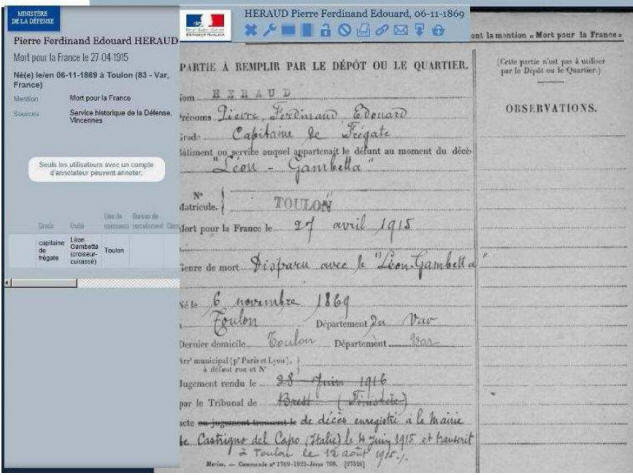 MINISTÈRE
DE LA DÉFENSE
Pierre Ferdinand Edouard HERAUD
Mort pour la France le 27-04-1915
Né(e) le/en 06-11-1869 à Toulon (83 - Var,
France)
Mention Mort pour la France
Sources Service historique de la Défense,
Vincennes
Seuls les utilisateurs avec un compte
d'annotateur peuvent annoter.
Grade Unité Lieu de naissance Bureau de recrutement
capitaine de frégate Léon Gambetta (croiseur-cuirassé) Toulon
HERAUD Pierre Ferdinand Edouard, 06-11-1869
ant la mention « Mort pour la France »
PARTIE À REMPLIR PAR LE DÉPÔT OU LE QUARTIER.
(Cette partie n'est pas à utiliser
par le Dépôt ou le Quartier.)
OBSERVATIONS.
Nom HERAUD
Prénoms Pierre, Ferdinand Edouard
Grade Capitaine de Frégate
Bâtiment ou service auquel appartenait le défunt au moment du décès
"Léon - Gambetta"
N°
Matricule. TOULON
Mort pour la France le 27 avril 1915
Genre de mort Disparu avec le "Léon-Gambetta"
Né le 6 novembre 1869
Toulon Département du Var
Dernier domicile Toulon Département Var
Arr' municipal (p' Paris et Lyon),
à défaut rue et N°
Jugement rendu le 28 Juin 1916
par le Tribunal de Brest (Finistère)
acte ou jugement transcrit le de décès enregistré à la Mairie
de Castrigno del Capo (Italie) le 4 Juin 1915 et transcrit
à Toulon le 12 août 1915.